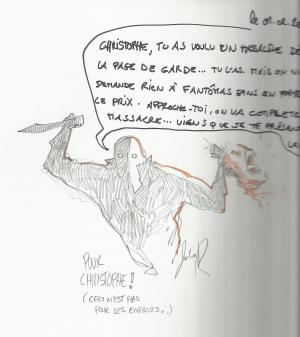 LE 01.02.20
CHRISTOPHE, TU AS VOULU UN MASSACRE DE
LA PAGE DE GARDE... TU L'AS. MAIS ON NE
DEMANDE RIEN À FANTÔMAS SANS EN
LE PRIX. APPROCHE-TOI, ON VA COMPLETER
MASSACRE... VIENS QUE JE TE PRÉSEN
LA
POUR
CHRISTOPHE!
(CECI N'EST PAS
POUR LES ENFANTS..)